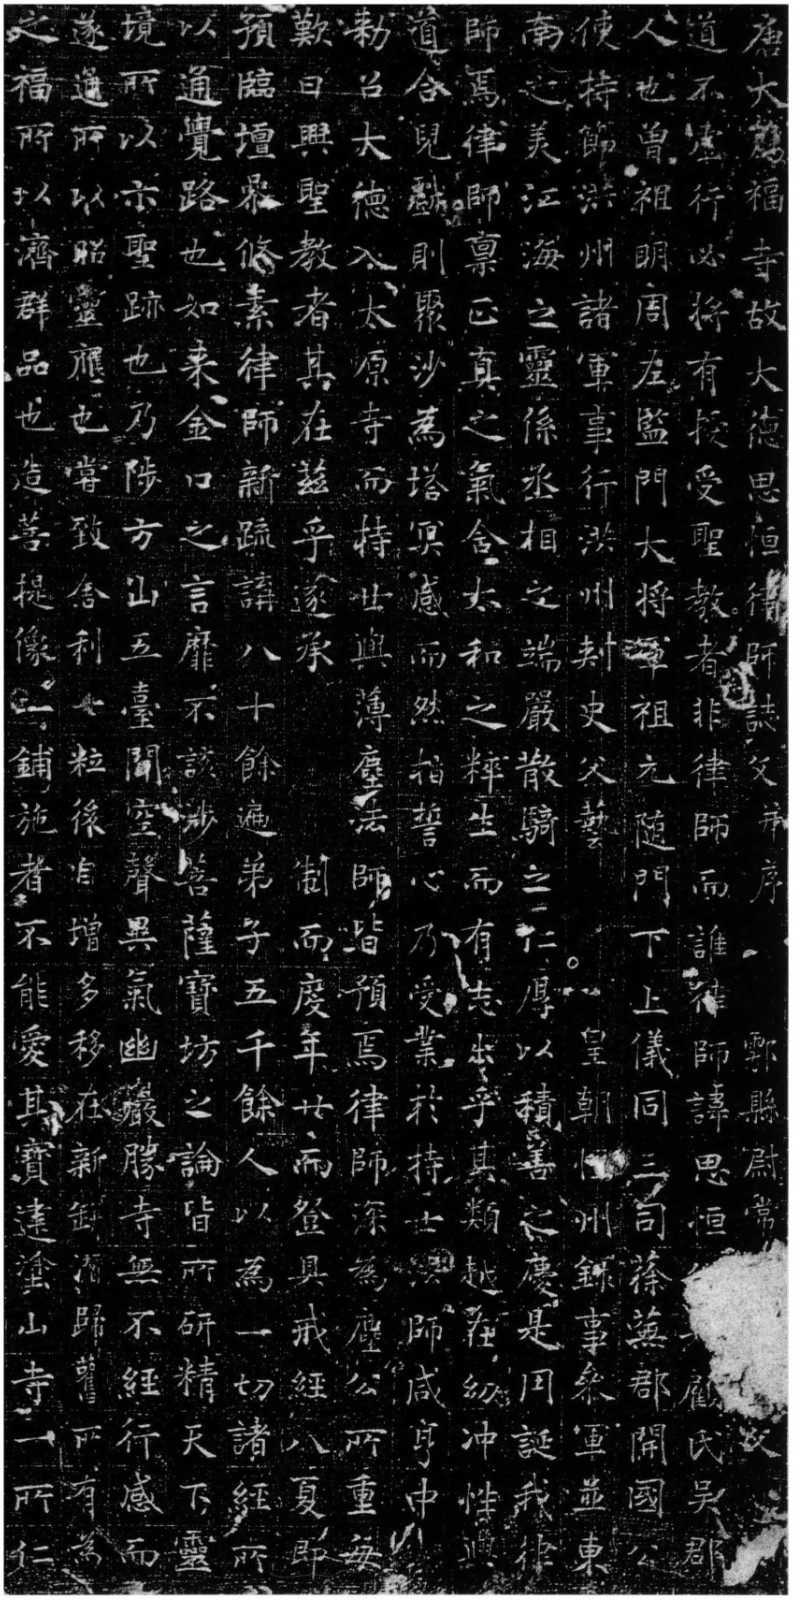 唐大薦福寺故大德思恒律師誌文并序 鄠縣尉常
道不虛行必將有授受聖教者非律師而誰律師諱思恒俗姓顧氏吳郡
人也曾祖明周左監門大將軍祖元隋門下上儀同三司蔡蕪郡開國公
使持節洪州諸軍事行洪州刾史父藝 皇朝恒州錄事叅軍並東
南之美江海之靈係丞相之端嚴散騎之仁厚以積善之慶是用誕我律
師焉律師禀正真之氣含太和之粹生而有志出乎其類越在幼冲性與
道合兒戲則聚沙為塔冥感而然指誓心乃受業於持世法師咸亨中
勅召大德入太原寺而持世與薄塵法師皆預焉律師深為塵公所重每
歎曰興聖教者其在茲乎遂承 制而度年廿而登具戒經八夏即
預臨壇衆修素律師新疏講八十餘遍弟子五千餘人以為一切諸經所
以通覺路也如来金口之言靡不該涉菩薩寶坊之論皆所研精天下靈
境所以示聖跡也乃陟方山五臺聞空聲異氣幽巖勝寺無不經行感而
遂通所以昭靈應也甞致舍利七粒後自增多移在新缶潛歸舊所有為
之福所以濟群品也造菩提像一鋪施者不能愛其寶建塗山寺一所仁